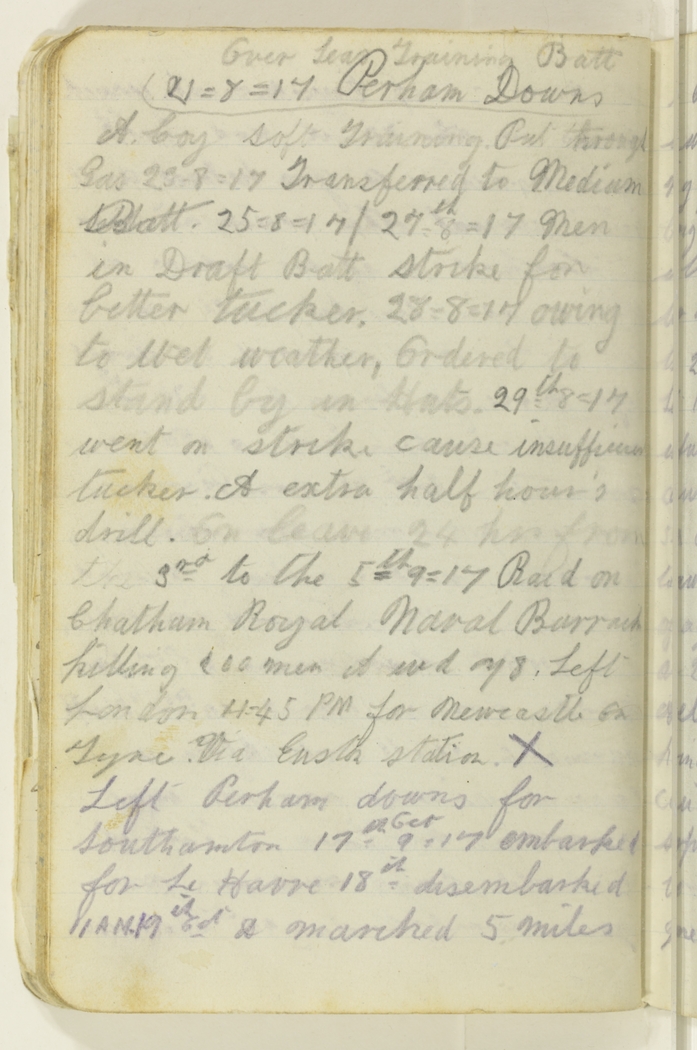 Over Seas Training Batt
21=8=17 Perham Downs
A. Coy soft Training. Put through
Gas 23-8=17 Transferred to Medium
Batt. 25=8=17/ 27th=8=17 Men
in Draft Batt strike for
better tucker. 28=8=17 owing
to wet weather, Ordered to
stand by in Huts. 29th=8=17
went on strike cause insufficien
tucker. A extra half hour's
drill. On leave 24 hrs from
the 3rd to the 5th=9=17 Raid on
Chatham Royal Naval Barrack
killing 100 men & wd 98. Left
London 11-45 PM for Newcastle on
Tyne. Via Euston station. X
Left Perham downs for
Southamton 17th Oct 9=17 embarked
for Le Havre 18th disembarked
1 AM 19th Oct & marched 5 miles